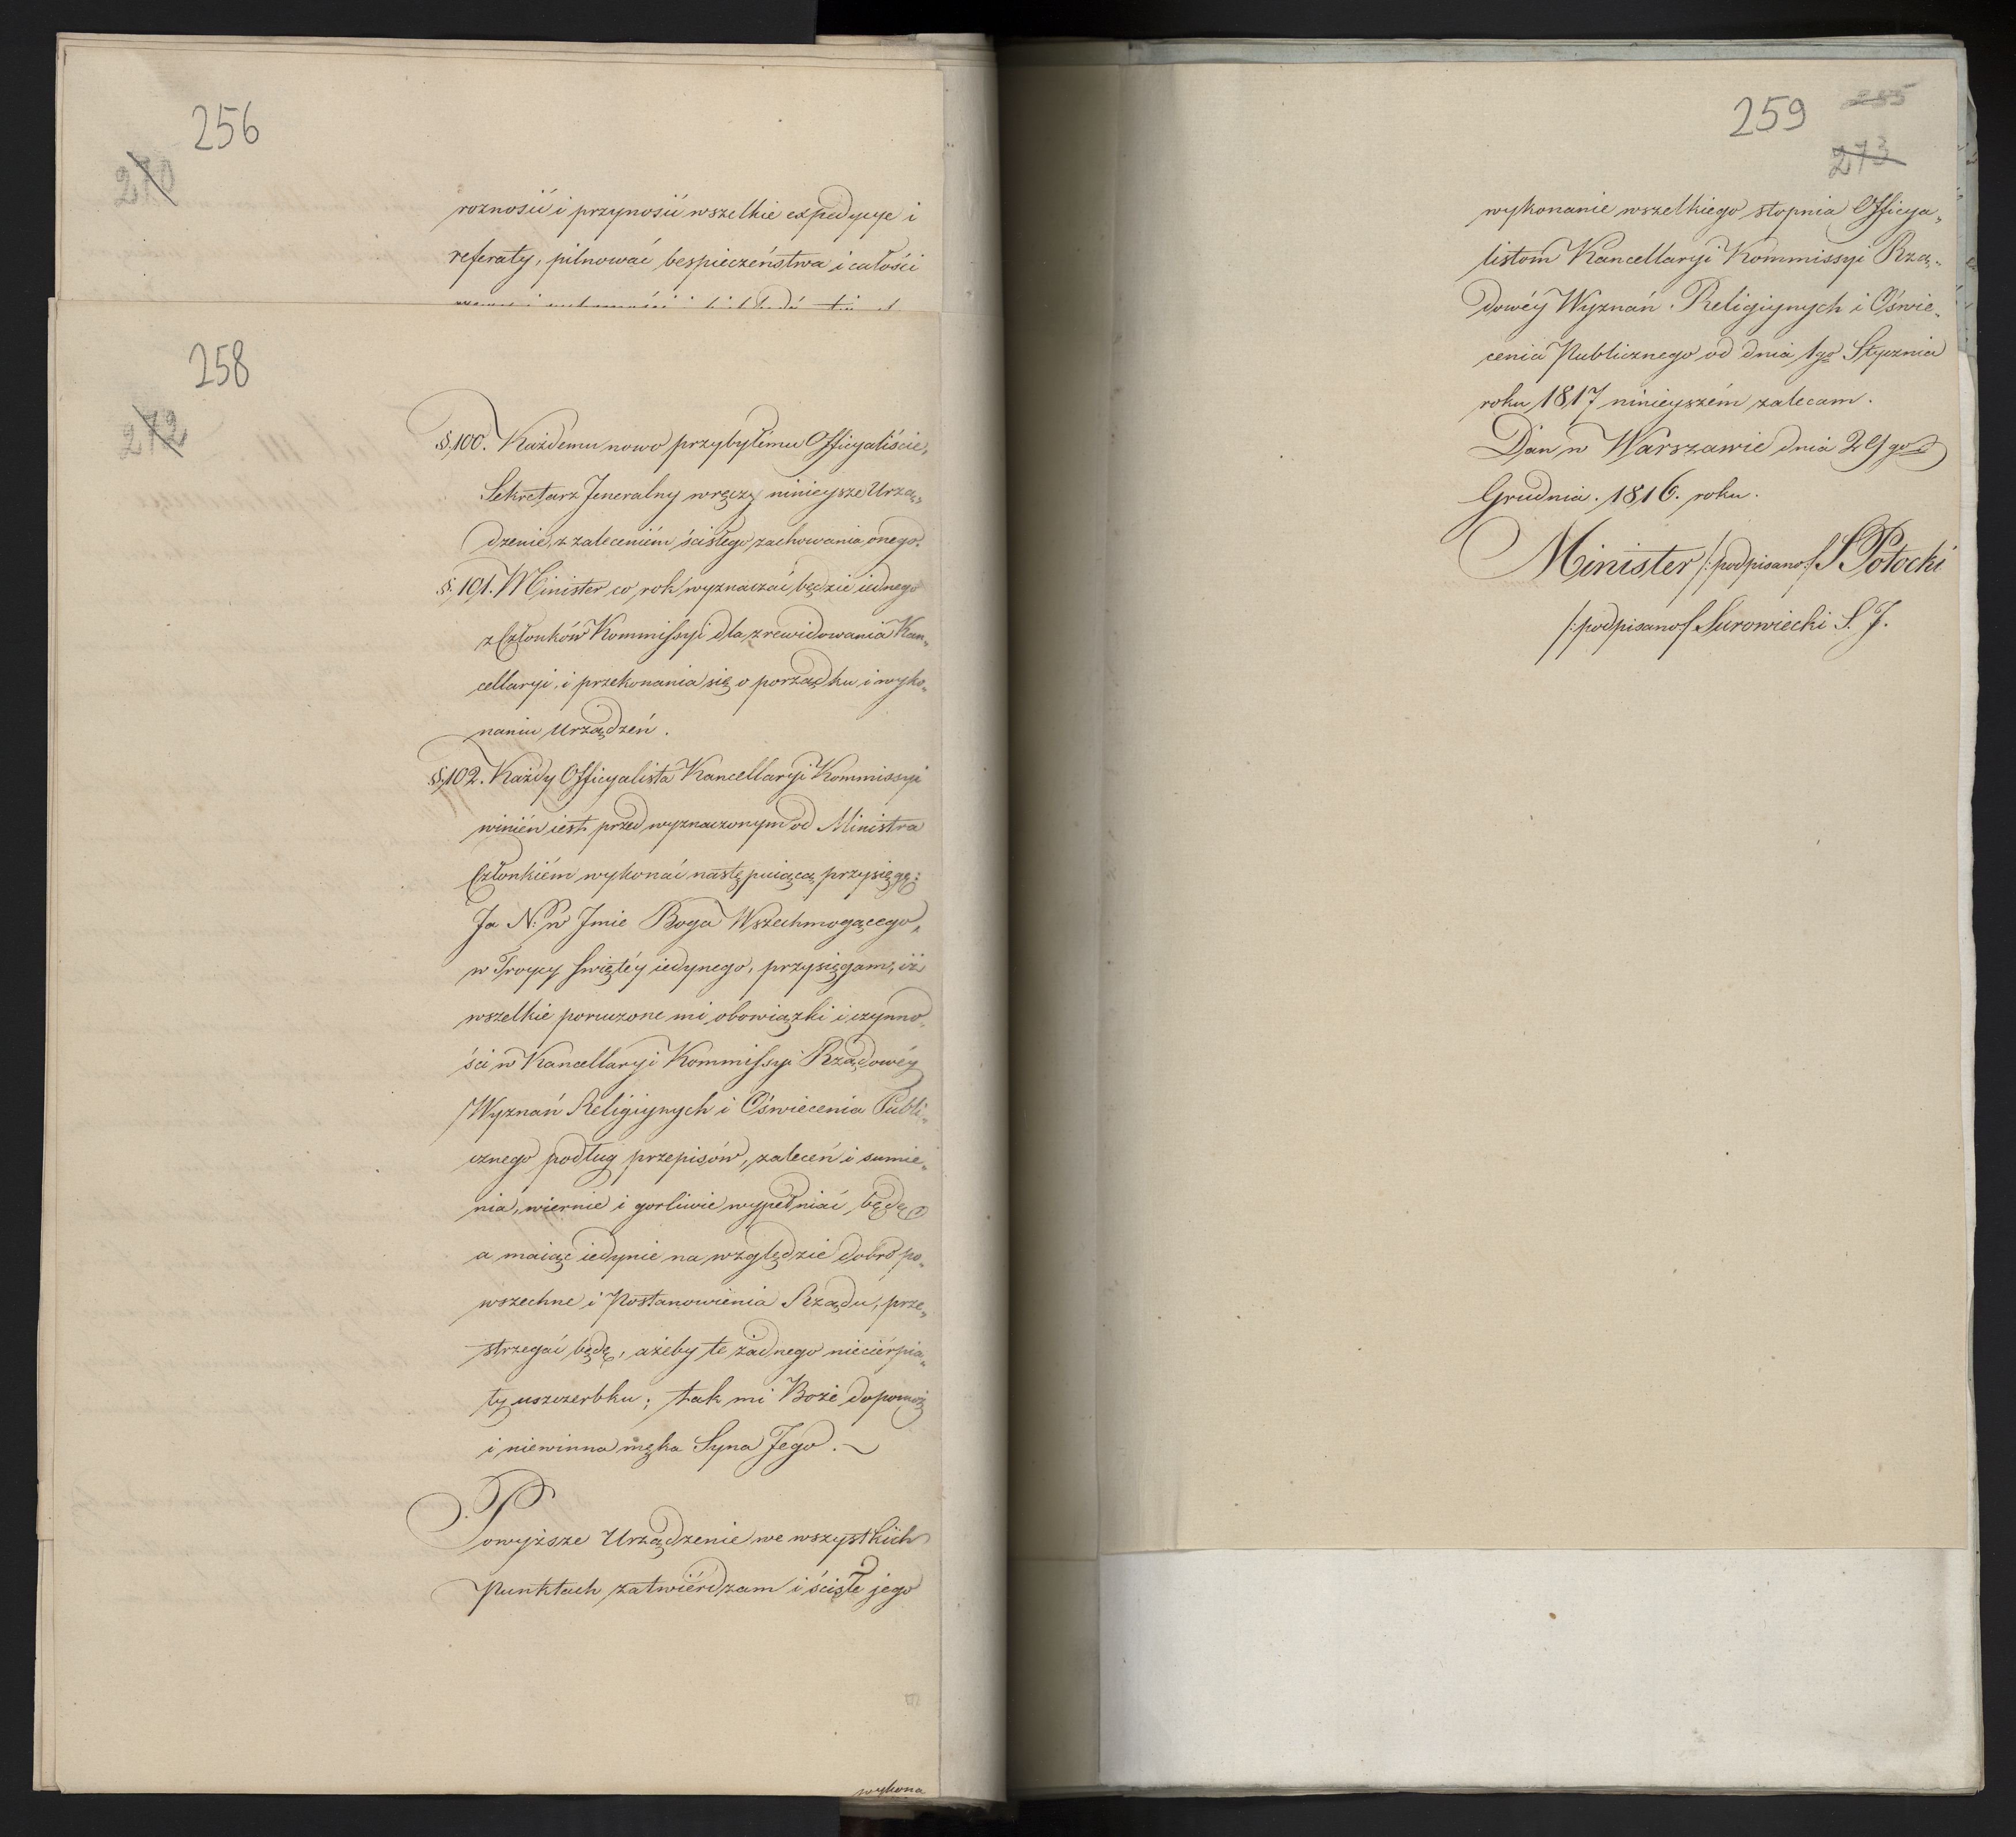 256
270
roznosić i przynosić wszelkie expedycye i
referaty, pilnować bespieczeństwa i całości
258
272
§.100. Każdemu nowo przybyłemu Officyaliście,
Sekretarz Jeneralny wręczy ninieysze Urzą„
dzenie, z zaleceniem ścisłego zachowania onego.
§.101. Minister co rok wyznaczać będzie iednego
z Członków Kommissyi dla zrewidowania Kan„
cellaryi, i przekonania się o porządku i wyko„
naniu Urządzeń.
§.102. Każdy Officyalista Kancellaryi Kommissyi
winién iest przed wyznaczonym od Ministra
Członkiém wykonać następuiącą przysięgę:
Ja N: w Jmie Boga Wszechmogącego,
w Troycy Swiętéy iedynego, przysięgam, iż
wszelkie poruczone mi obowiązki i czynno„
ści w Kancellaryi Kommissyi Rządowéy
Wyznań Religiynych i Oświecenia Publi„
cznego podług przepisów, zaleceń i sumie„
nia, wiernie i gorliwie wypełniać będę
a maiąc iedynie na względzie dobro po„
wszechne i Postanowienia Rządu, prze„
strzegać będę, ażeby te żadnego niecierpia„
ły uszczerbku; tak mi Boże dopomóż
i niewinna męka Syna Jego.
Powyższe Urządzenie we wszystkich
Punktach zatwiérdzam i ściśle jego
wykona
259
285
273
wykonanie wszelkiego stopnia Officya„
listom Kancellaryi Kommissyi Rzą„
dowéy Wyznań Religiynych i Oświe„
cenia Publicznego od dnia 1go Stycznia
roku 1817 ninieyszém zalecam.
Dan w Warszawie dnia 29go
Grudnia. 1816. roku.
Minister /:podpisano:/ S Potocki
/:podpisano/ Surowiecki S. J.